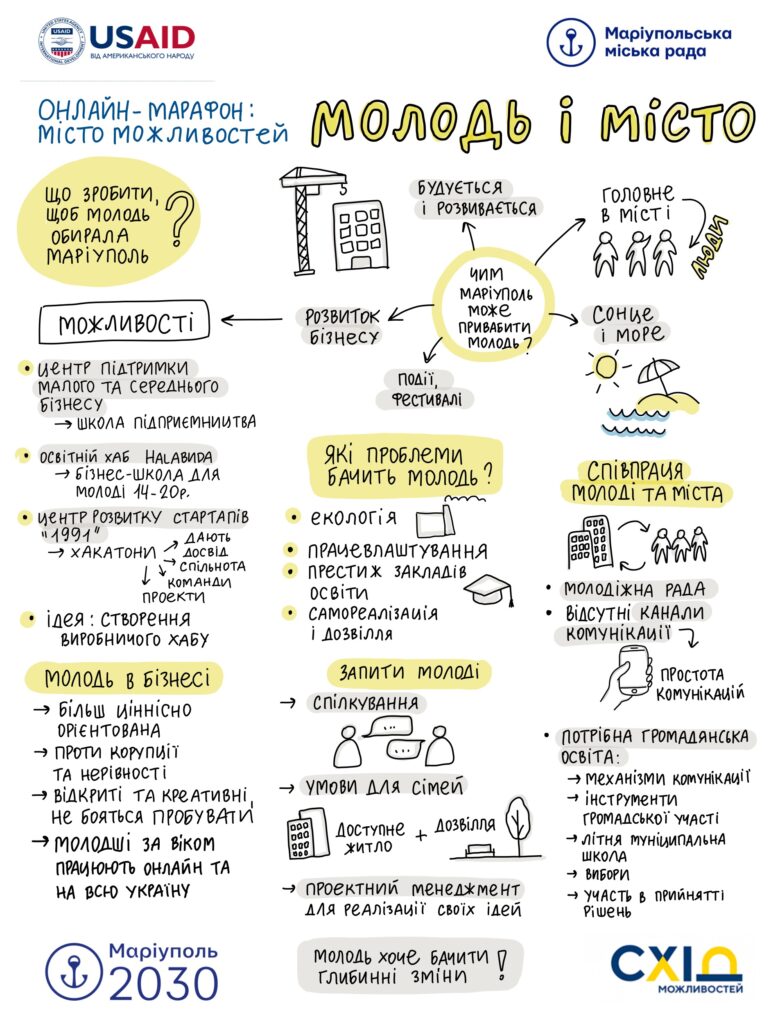 USAID
ВІД АМЕРИКАНСЬКОГО НАРОДУ
Маріупольська
міська рада
ОНЛАЙН-МАРАФОН:
МІСТО МОЖЛИВОСТЕЙ
МОЛОДЬ І МІСТО
ЩО ЗРОБИТИ,
ЩОБ МОЛОДЬ
ОБИРАЛА
МАРІУПОЛЬ
?
БУДУЄТЬСЯ
І РОЗВИВАЄТЬСЯ
ГОЛОВНЕ
В МІСТІ
ЛЮДИ
ЧИМ
МАРІУПОЛЬ
МОЖЕ
ПРИВАБИТИ
МОЛОДЬ?
СОНЦЕ
І МОРЕ
ПОДІЇ,
ФЕСТИВАЛІ
РОЗВИТОК
БІЗНЕСУ
МОЖЛИВОСТІ
• ЦЕНТР ПІДТРИМКИ
МАЛОГО ТА СЕРЕДНЬОГО
БІЗНЕСУ
→ ШКОЛА ПІДПРИЄМНИЦТВА
• ОСВІТНІЙ ХАБ HALABUDA
→ БІЗНЕС-ШКОЛА ДЛЯ
МОЛОДІ 14-20р.
• ЦЕНТР РОЗВИТКУ СТАРТАПІВ
"1991"
→ ХАКАТОНИ
→ ДАЮТЬ
ДОСВІД
→ СПІЛЬНОТА
КОМАНДИ
ПРОЕКТИ
• ІДЕЯ: СТВОРЕННЯ
ВИРОБНИЧОГО ХАБУ
МОЛОДЬ В БІЗНЕСІ
→ БІЛЬШ ЦІННІСНО
ОРІЄНТОВАНА
→ ПРОТИ КОРУПЦІЇ
ТА НЕРІВНОСТІ
→ ВІДКРИТІ ТА КРЕАТИВНІ,
НЕ БОЯТЬСЯ ПРОБУВАТИ
→ МОЛОДШІ ЗА ВІКОМ
ПРАЦЮЮТЬ ОНЛАЙН ТА
НА ВСЮ УКРАЇНУ
ЯКІ ПРОБЛЕМИ
БАЧИТЬ МОЛОДЬ?
• ЕКОЛОГІЯ
• ПРАЦЕВЛАШТУВАННЯ
• ПРЕСТИЖ ЗАКЛАДІВ
ОСВІТИ
• САМОРЕАЛІЗАЦІЯ
І ДОЗВІЛЛЯ
ЗАПИТИ МОЛОДІ
→ СПІЛКУВАННЯ
→ УМОВИ ДЛЯ СІМЕЙ
ДОСТУПНЕ
ЖИТЛО
+ ДОЗВІЛЛЯ
→ ПРОЕКТНИЙ МЕНЕДЖМЕНТ
ДЛЯ РЕАЛІЗАЦІЇ СВОЇХ ІДЕЙ
МОЛОДЬ ХОЧЕ БАЧИТИ
ГЛИБИННІ ЗМІНИ !
СПІВПРАЦЯ
МОЛОДІ ТА МІСТА
• МОЛОДІЖНА РАДА
• ВІДСУТНІ КАНАЛИ
КОМУНІКАЦІЇ
ПРОСТОТА
КОМУНІКАЦІЙ
• ПОТРІБНА ГРОМАДЯНСЬКА
ОСВІТА:
→ МЕХАНІЗМИ КОМУНІКАЦІЇ
→ ІНСТРУМЕНТИ
ГРОМАДСЬКОЇ УЧАСТІ
→ ЛІТНЯ МУНІЦИПАЛЬНА
ШКОЛА
→ ВИБОРИ
→ УЧАСТЬ В ПРИЙНЯТТІ
РІШЕНЬ
Маріуполь
2030
СХІД
МОЖЛИВОСТЕЙ